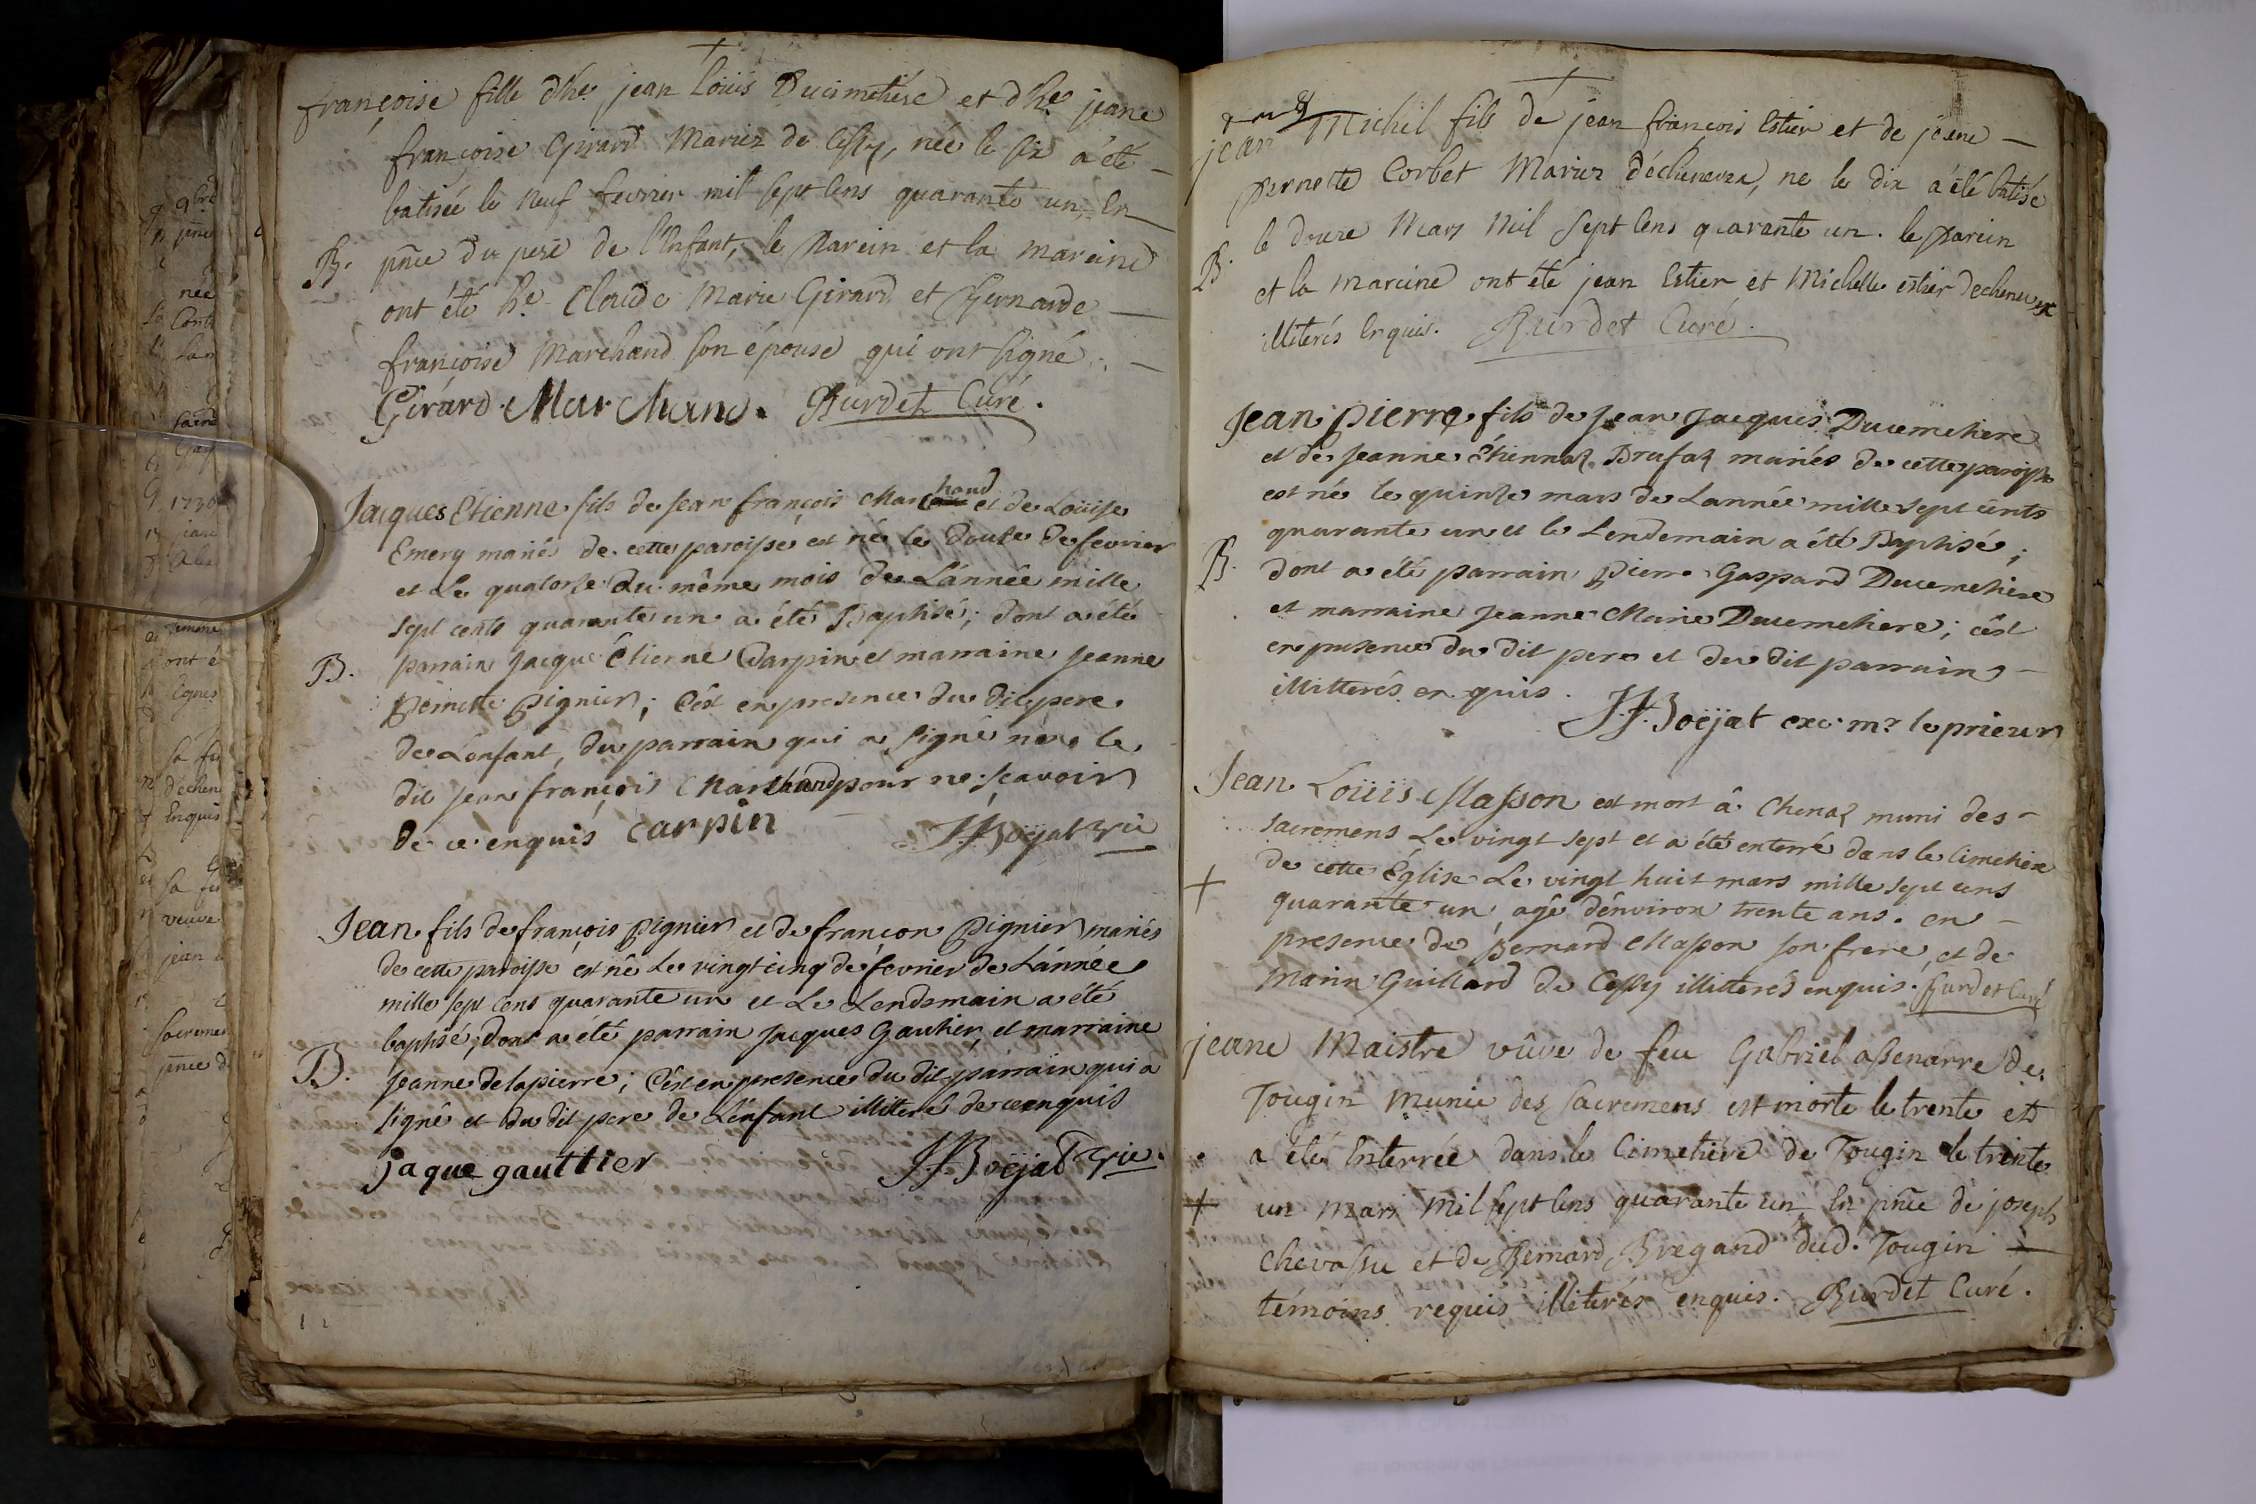 françoise fille d'he. jean louis Ducimetiére et d'he. jeane
françoise Girard Mariez de Cessy, née le six a été
batisée le neuf fevrier mil sept cens quarante un, En
B. pnce du pere de l'Enfant, le Parein et la mareine
ont été he. Claude Marie Girard et Bernarde
françoise Marchand son épouse qui ont signé.
Girard Marchand. Burdet Curé.
Jacques Etienne fils de Jean françois Marchand et de Loüise
Emery mariés de cette paroisse est né le douze de fevrier
et Le quatorze du même mois de L'année mille
sept cents quarante un a été Baptisé; dont a été
B. parrain Jacque Étienne Carpin et marraine Jeanne
Pernette Pignier; C'est en presence du dit pere
de L'enfant, du parrain qui a signé non le
dit Jean françois Marchand pour ne scavoir
de ce enquis Carpin J.F. Boëjat vic
Jean fils de françois Pignier et de françon Pignier mariés
de cette paroisse est né Le vingt cinq de fevrier de L'année
mille sept cens quarante un et Le Lendemain a été
baptisé; dont a été parrain Jacques Gautier, et marraine
B. Jeanne delapierre; C'est en presence du dit parrain qui a
signé et du dit pere de L'enfant illiteré de ce enquis
jaque gauttier J.F. Boëjat vic.
jean Michel fils de jean françois Estier et de jeane
pernette Corbet Mariez d'échenevex, ne le dix a été batisé
le douze Mars Mil sept cens quarante un. le parein
B. et la mareine ont été jean Estier et Michelle estier dechenevex
illiterés Enquis. Burdet Curé.
Jean pierre fils de Jean Jacques Ducimetiere
et de Jeanne Étiennaz Brafaz mariés de cette paroisse
est né le quinze mars de Lannée mille sept cents
quarante un et le Lendemain a été Baptisé;
B. dont a été parrain Pierre Gaspard Ducemetiére
et marraine Jeanne Marie Ducemetiere; c'est
en presence du dit pere et du dit parrain
illitterés en quis. J.F. Boëjat exc. mr. le prieur
Jean Loüis Masson est mort â Chenaz muni des
sacremens Le vingt sept et a été enterré dans le Cimetiere
de cette Église Le vingt huit mars mille sept cens
quarante un, agé d'environ trente ans. en
presence de Bernard Masson son frere, et de
Marin Guillard de Cessy illitterés enquis. Burdet Curé
jeane Maistre vûve de feu Gabriel assenarre de
Tougin munie des sacremens est morte le trente et
a été Enterrée dans le Cimetiére de Tougin le trente
un mars mil sept cens quarante un, En pnce de joseph
Chevassu et de Bernard Bregand dud. Tougin
témoins requis illiterés enquis. Burdet Curé.